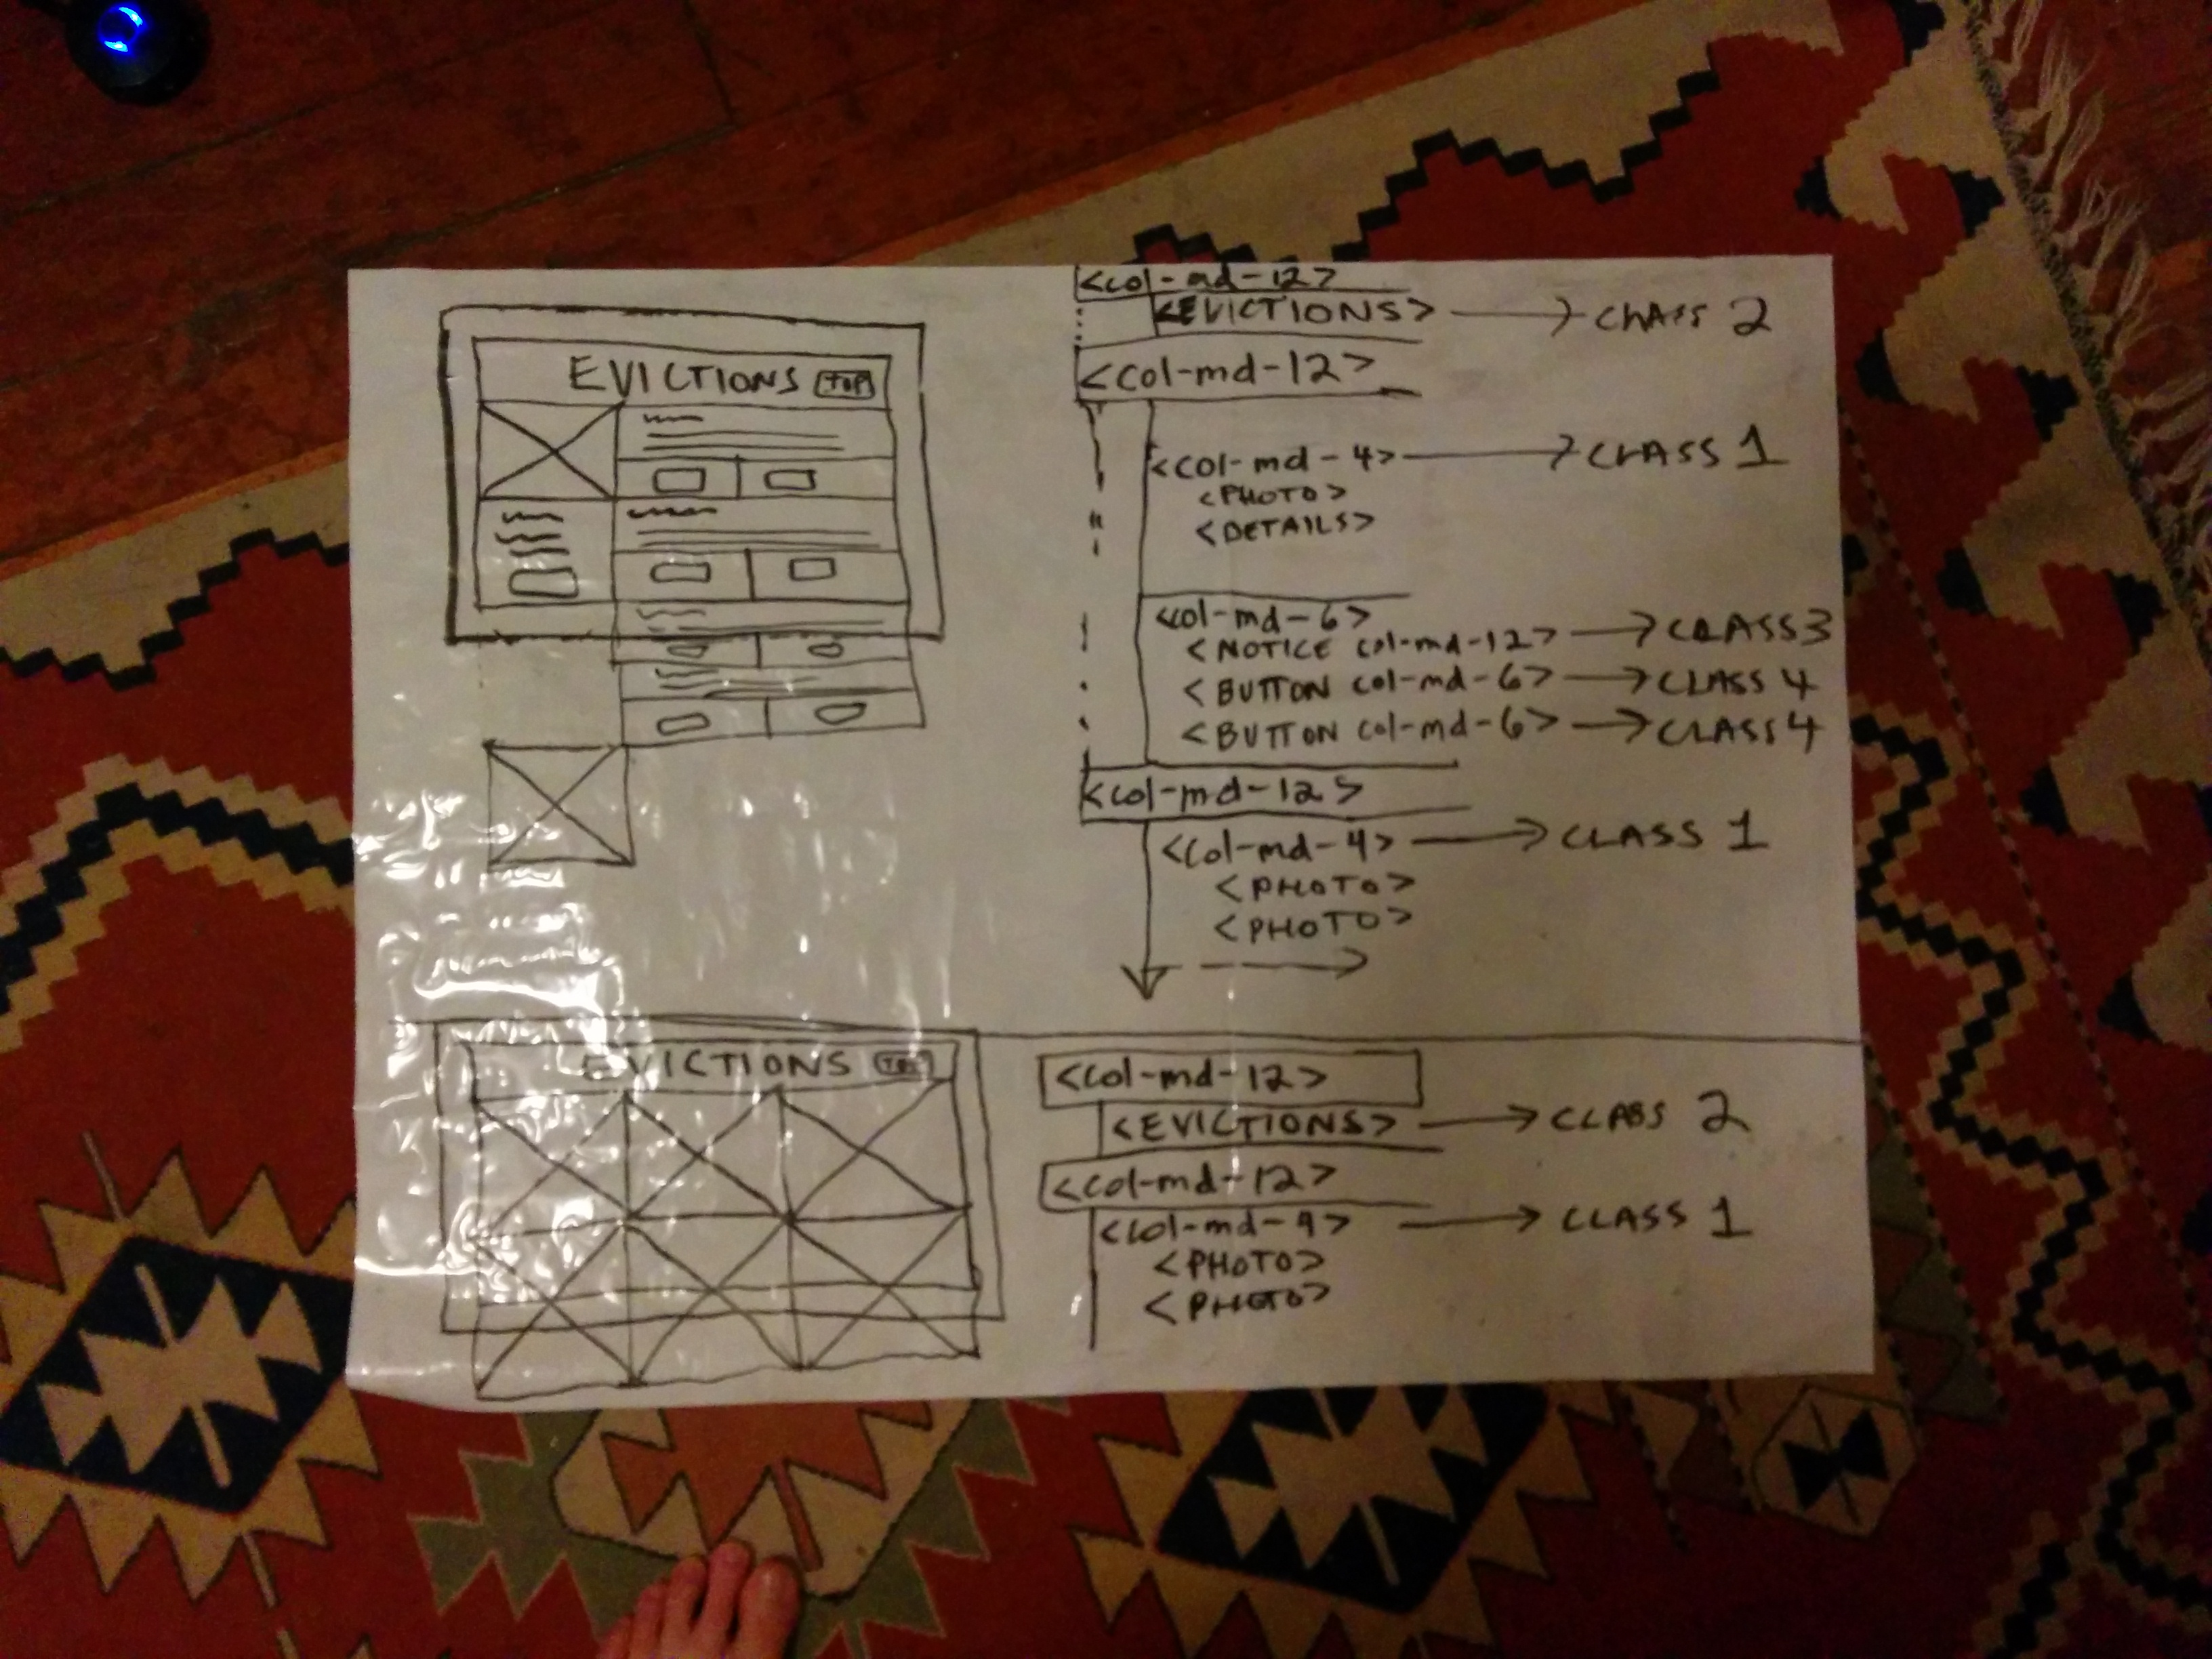 EVICTIONS TOP
<col-md-12>
<EVICTIONS> → CLASS 2
<col-md-12>
<col-md-4> → CLASS 1
<PHOTO>
<DETAILS>
<col-md-6>
<NOTICE col-md-12> → CLASS 3
<BUTTON col-md-6> → CLASS 4
<BUTTON col-md-6> → CLASS 4
<col-md-12>
<col-md-4> → CLASS 1
<PHOTO>
<PHOTO>
EVICTIONS TOP
<col-md-12>
<EVICTIONS> → CLASS 2
<col-md-12>
<col-md-4> → CLASS 1
<PHOTO>
<PHOTO>